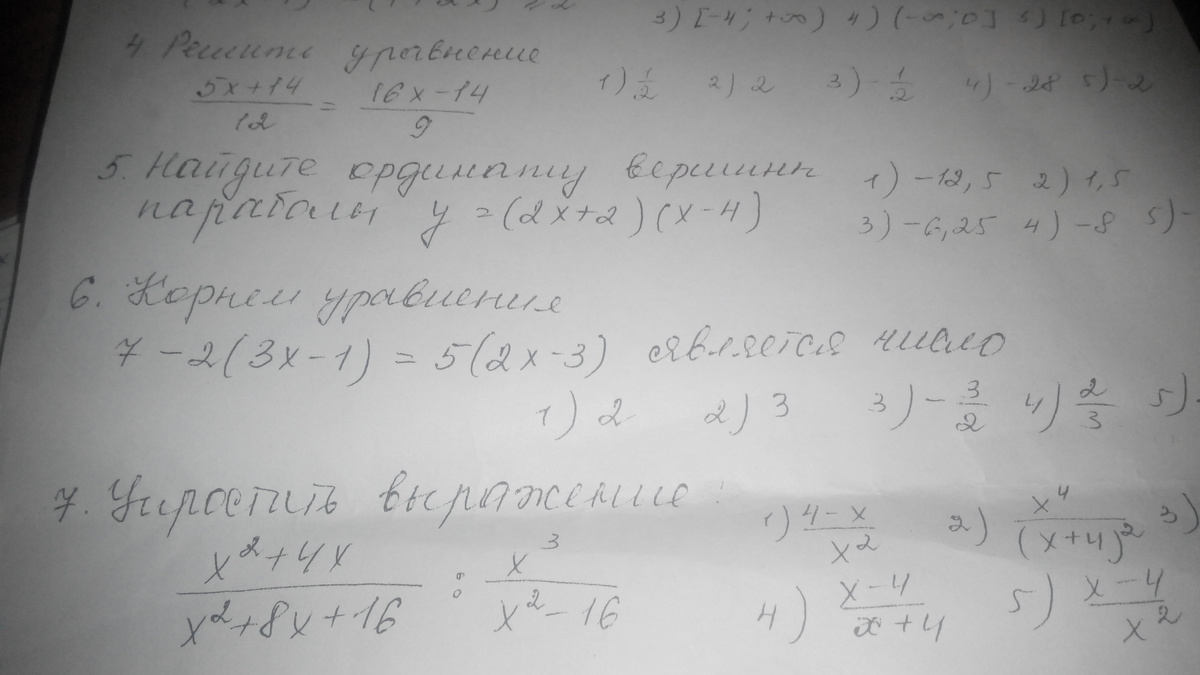 3) [-4; +∞) 4) (-∞; 0] 5) [0; +∞)
4. Решить уравнение
(5x+14)/12 = (16x-14)/9 1) 1/2 2) 2 3) -1/2 4) -28 5) -2
5. Найдите ординату вершины 1) -12,5 2) 1,5
параболы y = (2x+2)(x-4) 3) -6,25 4) -8 5) -
6. Корнем уравнения
7 - 2(3x-1) = 5(2x-3) является число
1) 2 2) 3 3) -3/2 4) 2/3 5) -
7. Упростить выражение:
(x²+4x)/(x²+8x+16) : x³/(x²-16)
1) (4-x)/x² 2) x⁴/(x+4)² 3)
4) (x-4)/(x+4) 5) (x-4)/x²